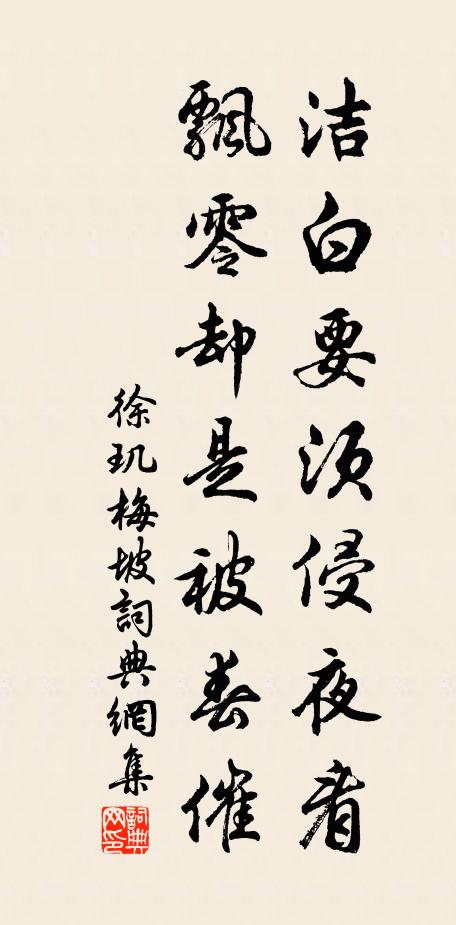 洁白要须侵夜看
飘零却是被春催
徐玑梅坡詞典網集
詞典网印